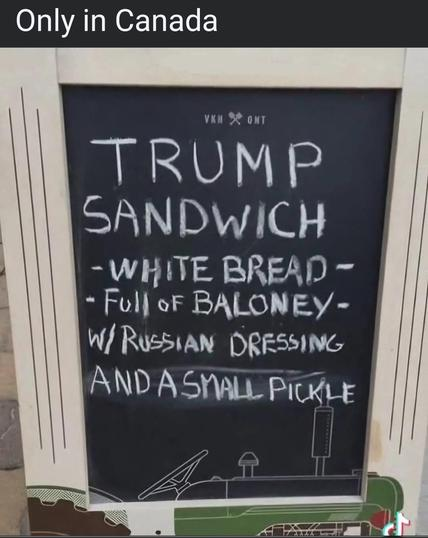 Only in Canada
VKH ONT
TRUMP
SANDWICH
-WHITE BREAD-
-Full oF BALONEY-
W/ RUSSIAN DRESSING
AND A SMALL PICKLE